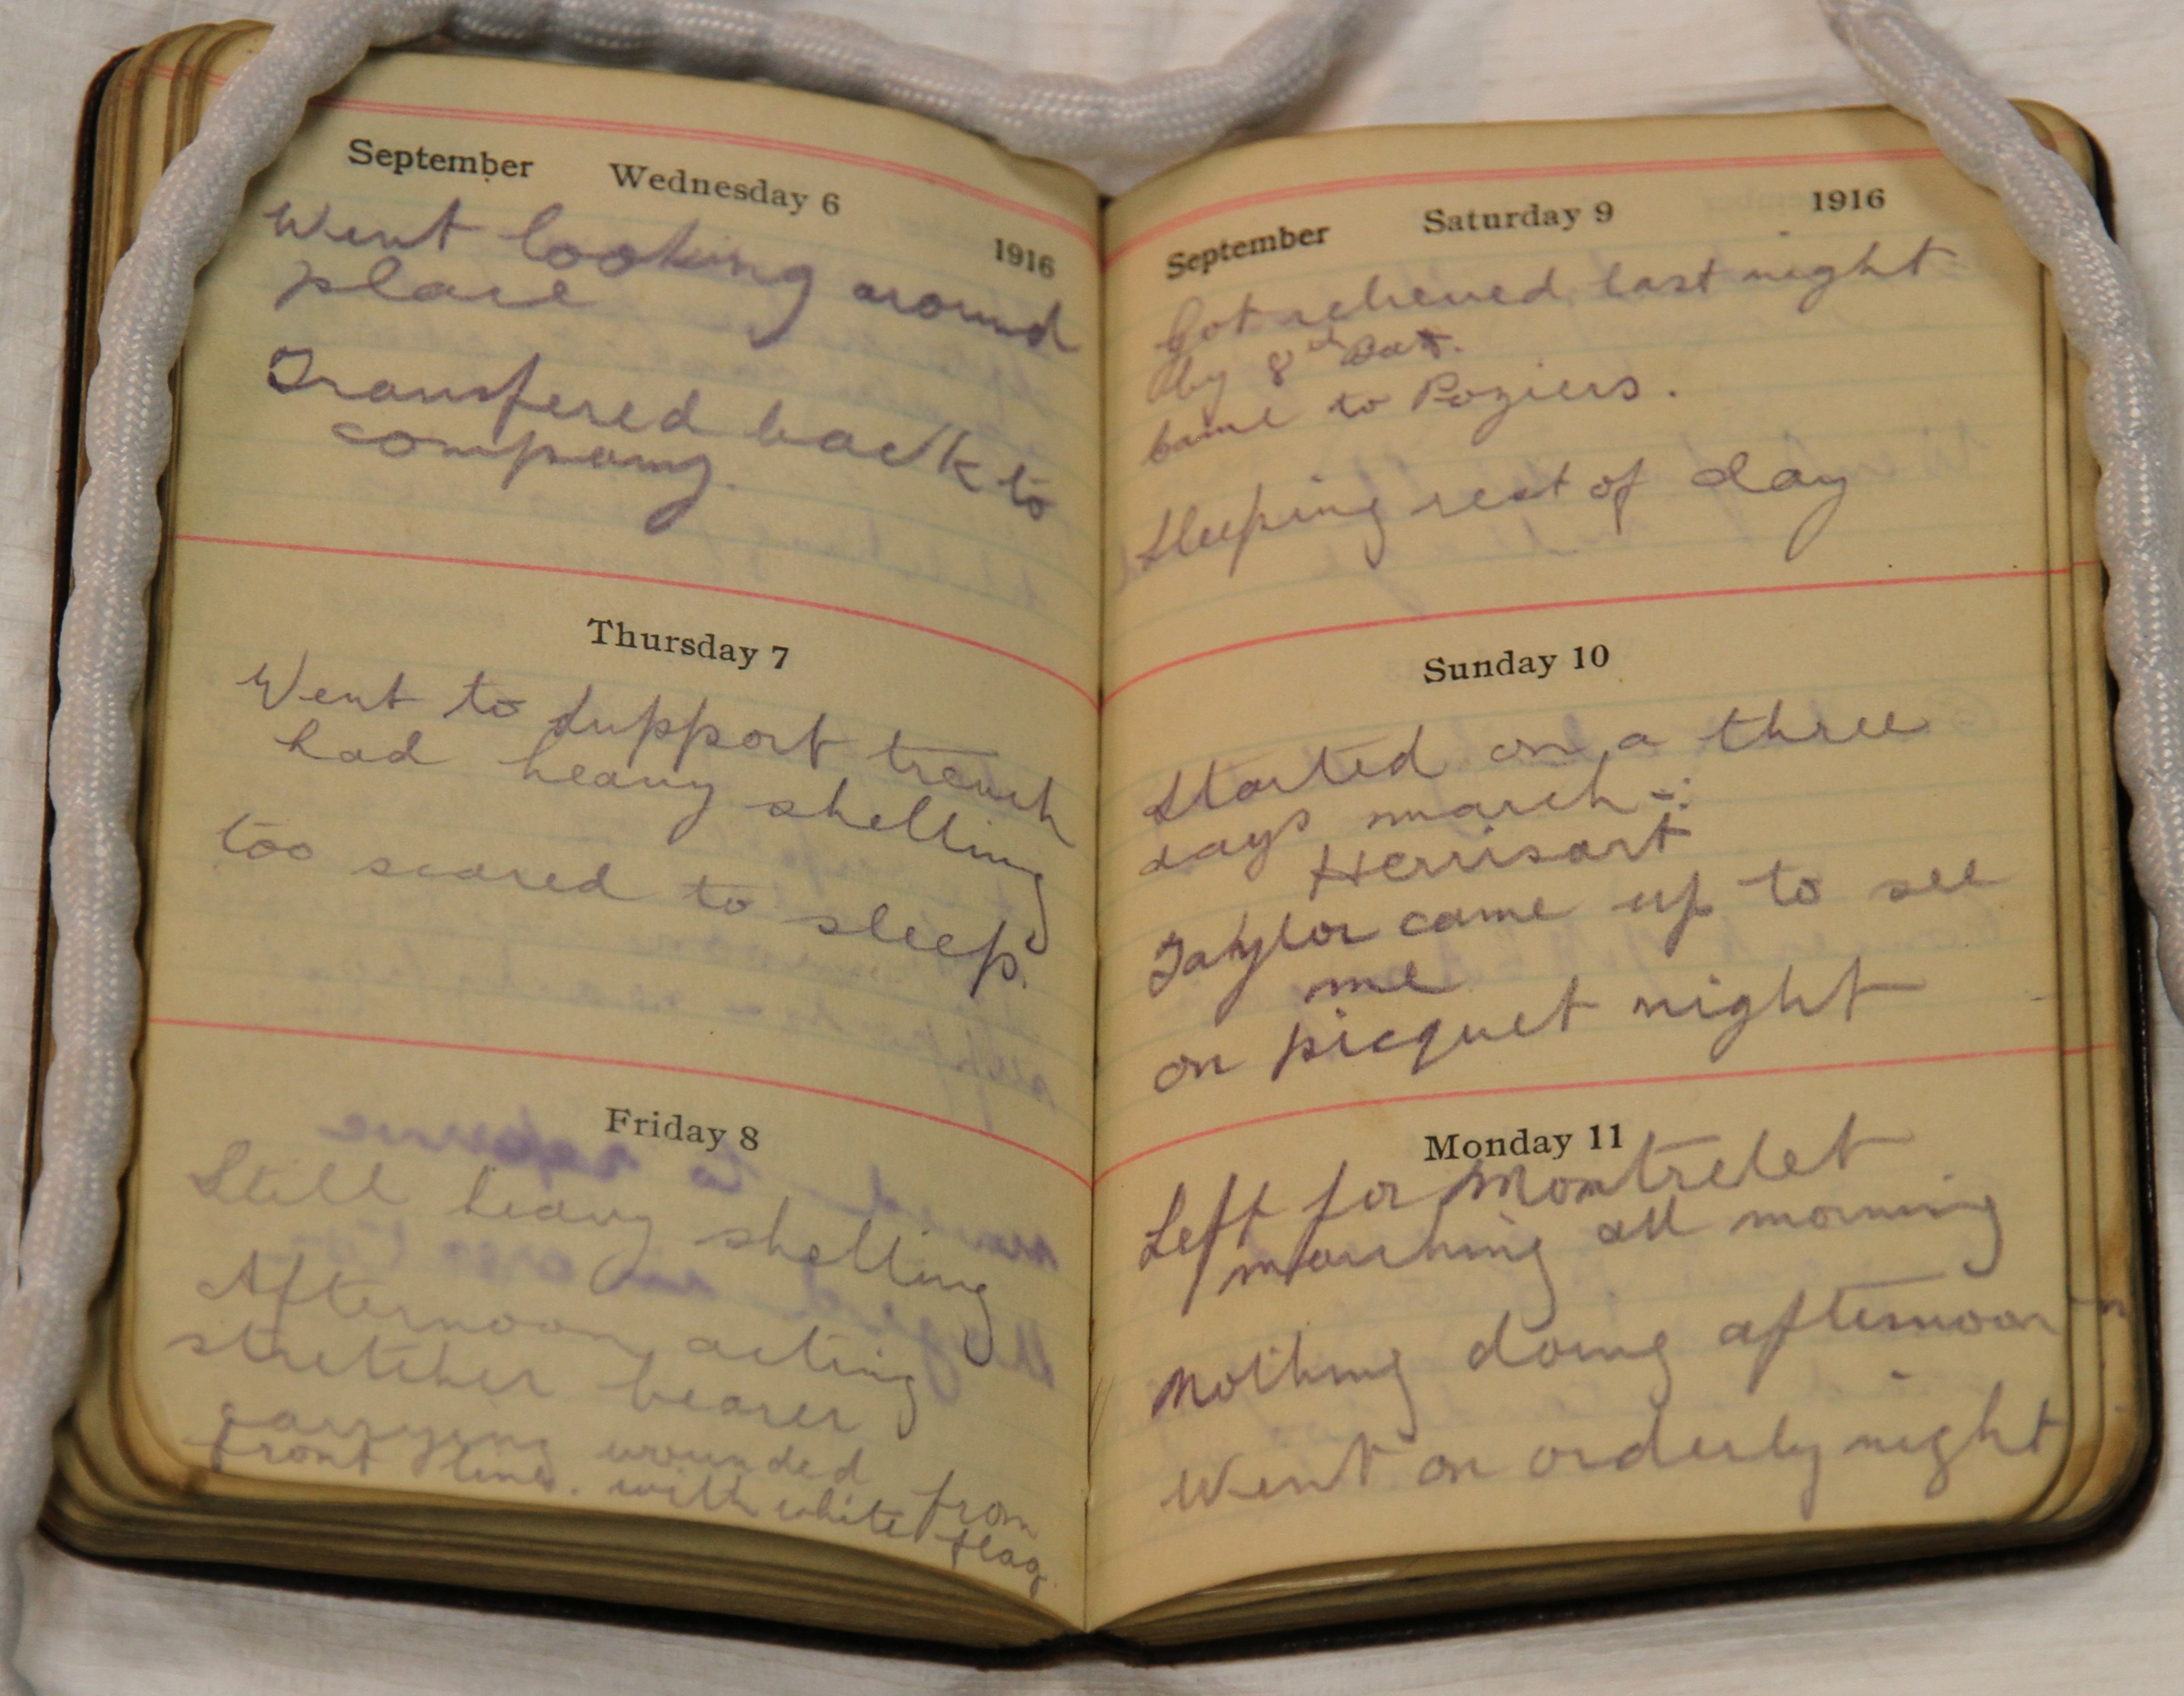 September Wednesday 6 1916
Went looking around
place
Transfered back to
company.
Thursday 7
Went to support trench
had heavy shelling
too scared to sleep.
Friday 8
Still heavy shelling
Afternoon acting
stretcher bearer
carrying wounded from
front line. with white flag.
September Saturday 9 1916
Got relieved last night
by 8th Bat.
Came to Poziers.
Sleeping rest of day
Sunday 10
Started on a three
days march -:
Herrisart
Taylor came up to see
me
on picquet night
Monday 11
Left for Montrelet
marching all morning
Nothing doing afternoon
Went on orderly night